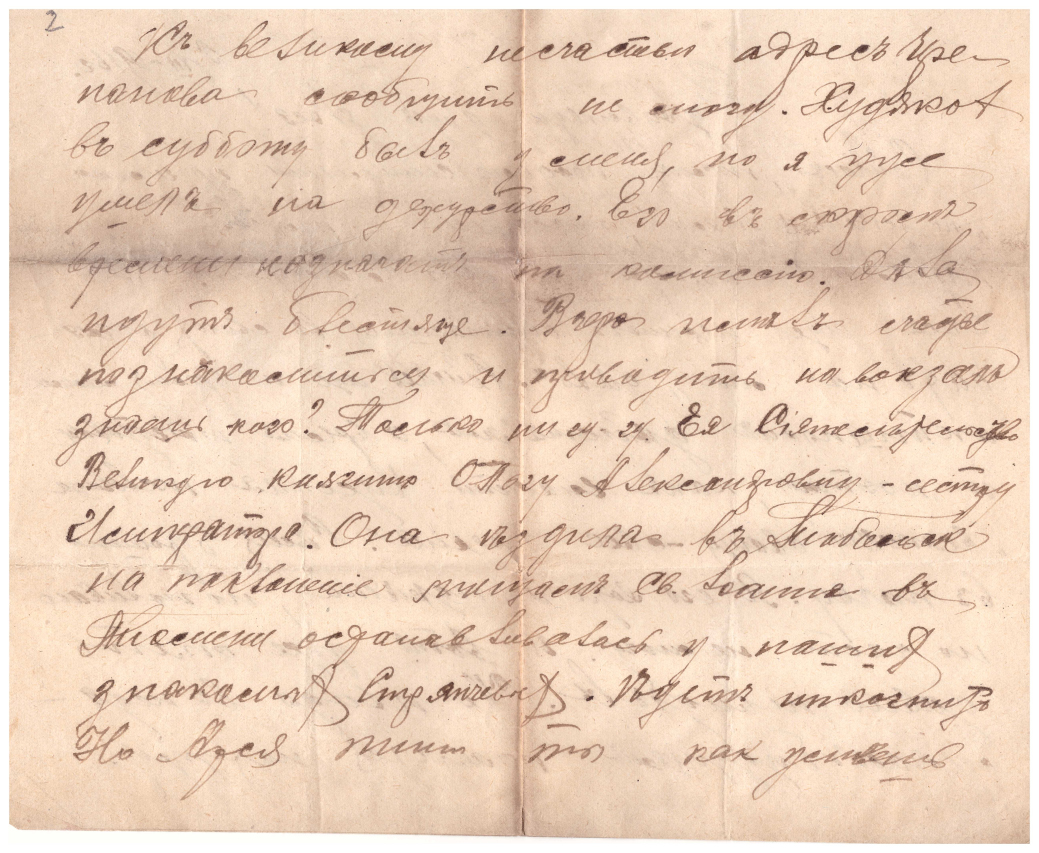 2
Къ великому несчастью адресъ Чре-
панова сообщить не могу. Худяков
въ субботу былъ у меня, но я уже
ушелъ на дежурство. Его въ скором
времени назначатъ на комиссию. Дѣла
идутъ блестяще. Вчера имѣлъ счастье
познакомиться и проводить на вокзалъ
знаешь кого? Только ни гу-гу. Ея Сіятельство
Великую княгиню Ольгу Александровну - сестру
Императора. Она ѣздила въ Тобольск
на поклоненіе мощамъ Св. Iоанна въ
Тюмени останавливалась у наших
знакомых Стряпчевых. Ѣдетъ инкогнито
Но Муся пиши ты как успѣешь